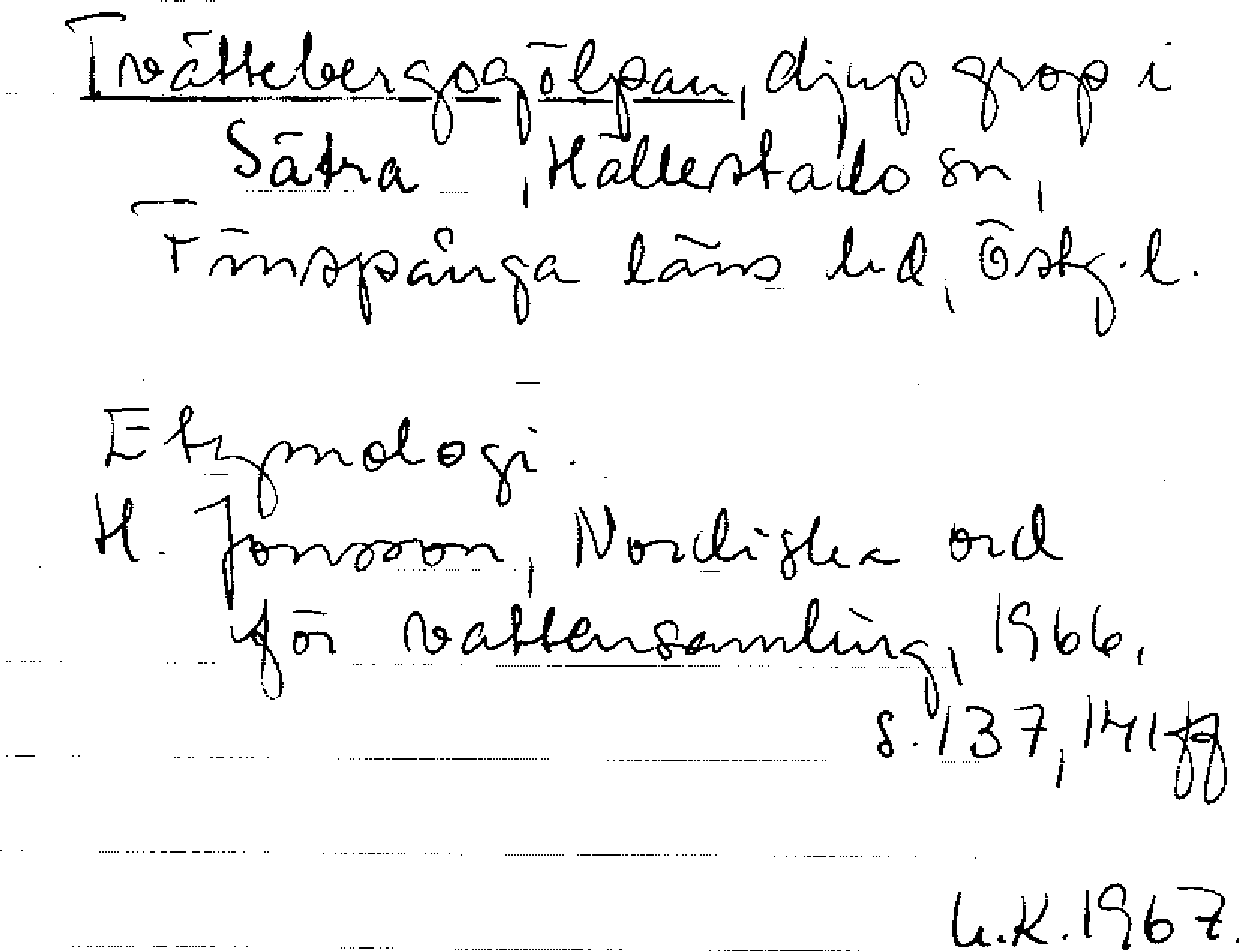 Tvättebergsgölpan, djup grop i
Sätra, Hällestads sn,
Finspånga läns hd, Östg.l.
Etymologi.
H. Jonsson, Nordiska ord
för vattensamling, 1966,
s. 137, 141 ff
h.K. 1967.